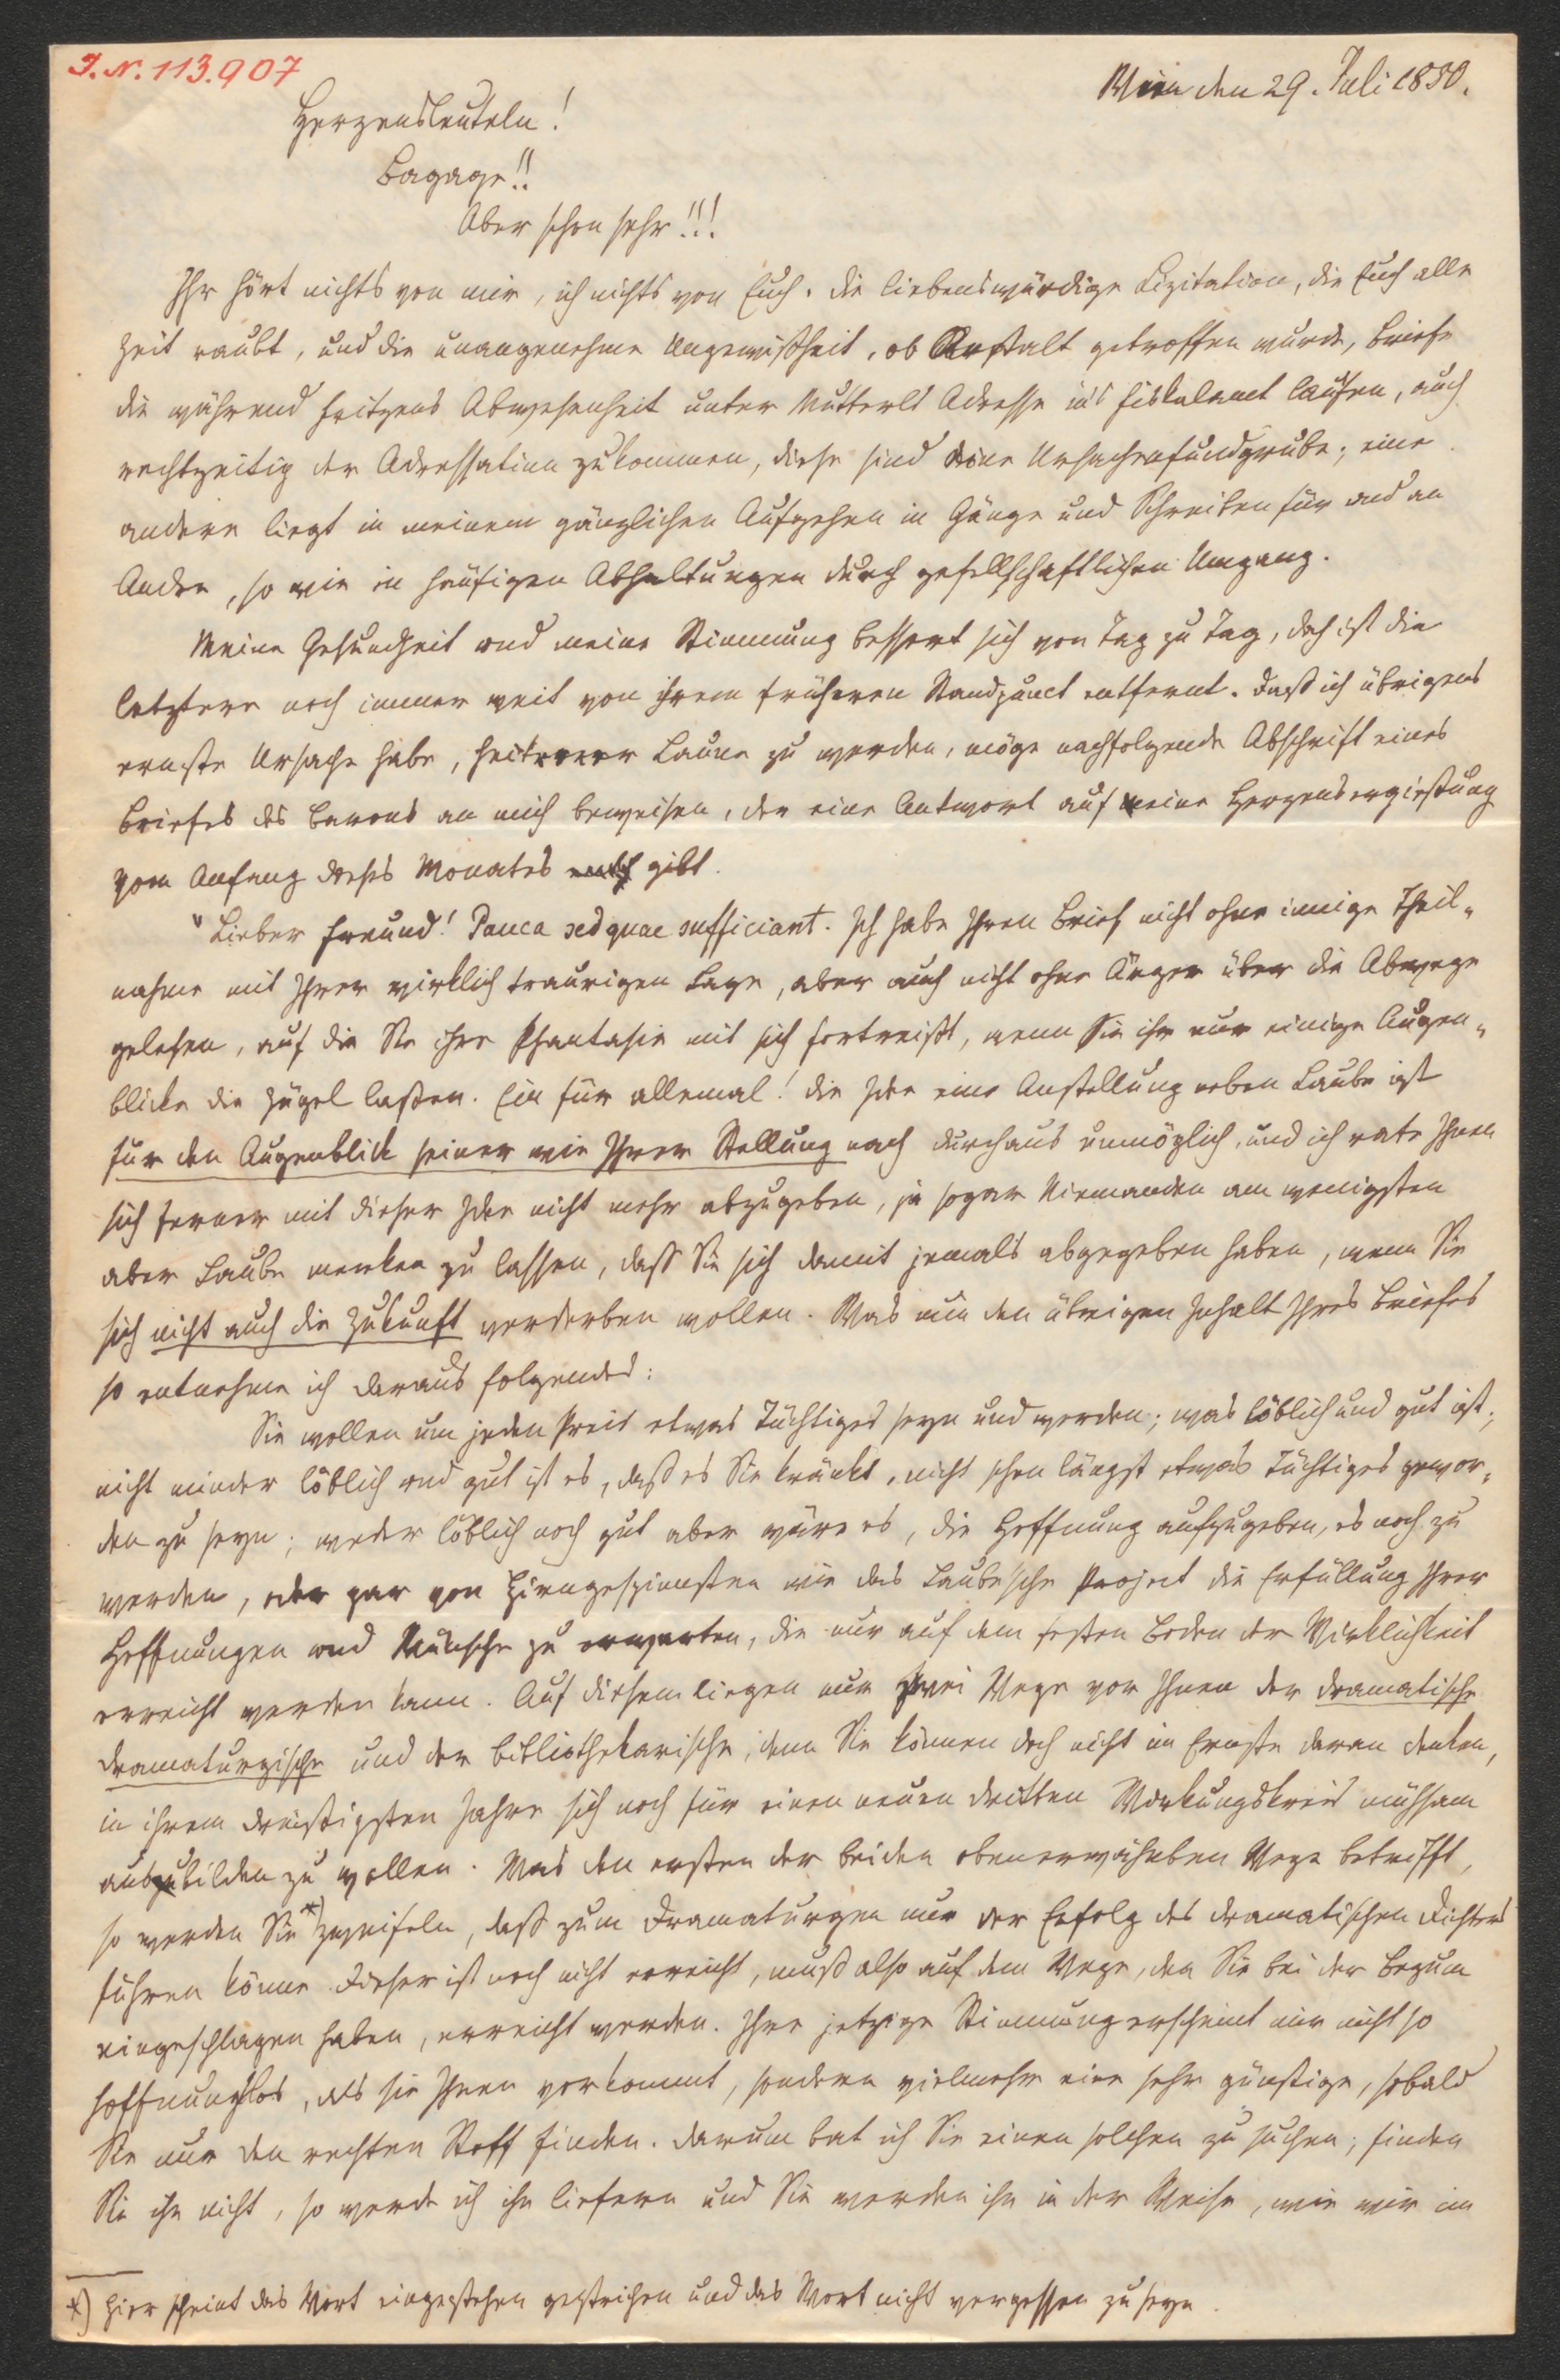 I. N. 113.907
Wien den 29. Juli 1850.
Herzensleuteln!
Bagage!!
Aber schon sehr!!!
Ihr hört nichts von mir, ich nichts von Euch. Die liebenswürdige Lizitation, die Euch alle
Zeit raubt, und die unangenehme Ungewißheit, ob Anstalt getroffen wurde, Briefe
die während Fritzens Abwesenheit unter Mutterls Adresse in's Fiskalamt laufen, auch
rechtzeitig der Adressatinn zukommen, diese sind eine Ursachenfundgrube; eine
andere liegt in meinem gänzlichen Aufgehen in Gänge und Schreiben für und an
Andre, so wie in häufigen Abhaltungen durch gesellschaftlichen Umgang.
Meine Gesundheit und meine Stimmung bessert sich von Tag zu Tag, doch ist die
letztere noch immer weit von ihrem früheren Standpunct entfernt. Daß ich übrigens
ernste Ursache habe, heiterer Laune zu werden, möge nachfolgende Abschrift eines
Briefes des Barons an mich beweisen, der eine Antwort auf meine Herzensergießung
vom Anfang dieses Monates gibt.
"Lieber Freund! Pauca sed quae sufficiant. Ich habe Ihren Brief nicht ohne innige Theil-
nahme mit Ihrer wirklich traurigen Lage, aber auch nicht ohne Ärger über die Abwege
gelesen, auf die Sie ihre Phantasie mit sich fortreißt, wenn Sie ihr nur einige Augen-
blicke die Zügel laßen. Ein für allemal! die Idee eine Anstellung neben Laube ist
für den Augenblick seiner wie Ihrer Stellung nach durchaus unmöglich, und ich rate Ihnen
sich ferner mit dieser Idee nicht mehr abzugeben, ja sogar Niemanden am wenigsten
aber Laube merken zu lassen, dass Sie sich damit jemals abgegeben haben, wenn Sie
sich nicht auch die Zukunft verderben wollen. Was nun den übrigen Inhalt Ihres Briefes
so entnehme ich daraus folgendes:
Sie wollen um jeden Preis etwas Tüchtiges seyn und werden; was löblich und gut ist;
nicht minder löblich und gut ist es, daß es Sie kränkt, nicht schon längst etwas Tüchtiges gewor-
den zu seyn; weder löblich noch gut aber wäre es, die Hoffnung aufzugeben, es noch zu
werden, oder gar von Hirngespinsten wie das Laube'sche Project die Erfüllung Ihrer
Hoffnungen und Wünsche zu erwarten, die nur auf dem festen Boden der Wirklichkeit
erreicht werden kann. Auf diesem liegen nur zwei Wege vor Ihnen der dramatische
dramaturgische und der bibliothekarische, denn Sie können doch nicht im Ernste daran denken,
in ihrem dreißigsten Jahre sich noch für einen neuen dritten Wirkungskreis mühsam
ausbilden zu wollen. Was den ersten der beiden obenerwähnten Wege betrifft,
so werden Sie *) zweifeln, daß zum Dramaturgen nur der Erfolg des dramatischen Dichters
führen könne. Dieser ist noch nicht erreicht, muß also auf dem Wege, den Sie bei der Begum
eingeschlagen haben, erreicht werden. Ihre jetzige Stimmung erscheint mir nicht so
hoffnungslos, als sie Ihnen vorkommt, sondern vielmehr eine sehr günstige, sobald
Sie nur den rechten Stoff finden. Darum bat ich Sie einen solchen zu suchen; finden
Sie ihn nicht, so werde ich ihn liefern und Sie werden ihn in der Weise, wie wir im
*) Hier scheint das Wort eingestehen gestrichen und das Wort nicht vergessen zu seyn.